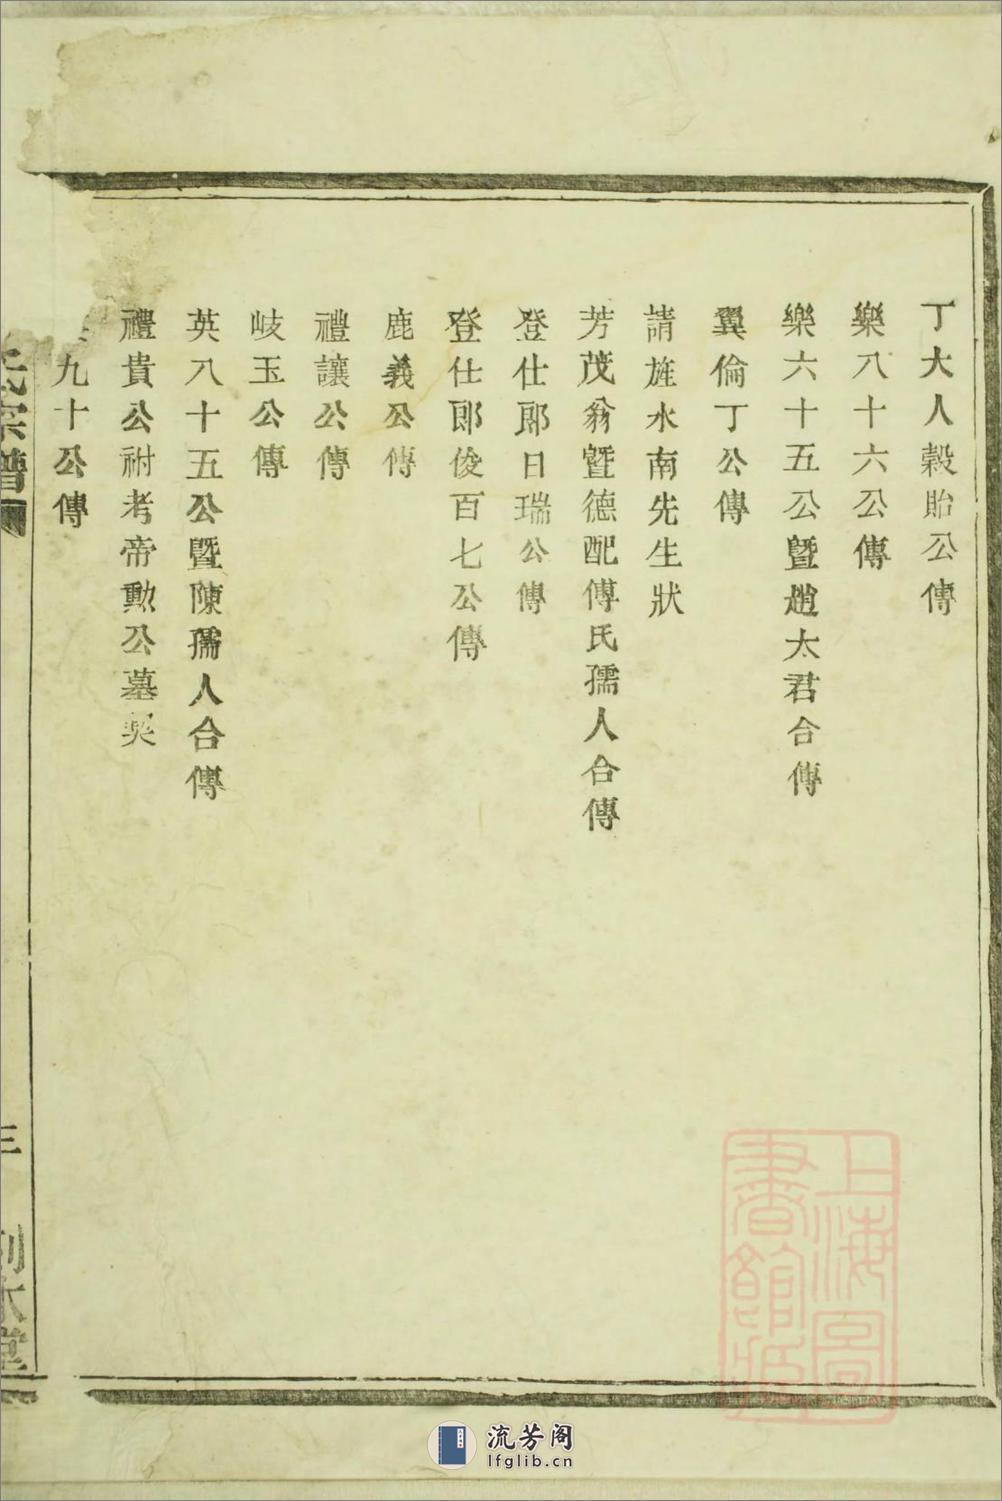 丁大人穀貽公傳
樂八十六公傳
樂六十五公暨趙太君合傳
翼倫丁公傳
請旌水南先生狀
芳茂翁暨德配傅氏孺人合傳
登仕郎日瑞公傳
登仕郎俊百七公傳
鹿義公傳
禮讓公傳
岐玉公傳
英八十五公暨陳孺人合傳
禮貴公祔考帝勳公墓契
九十公傳
氏宗譜
三
上海圖書館藏
流芳阁
lfglib.cn